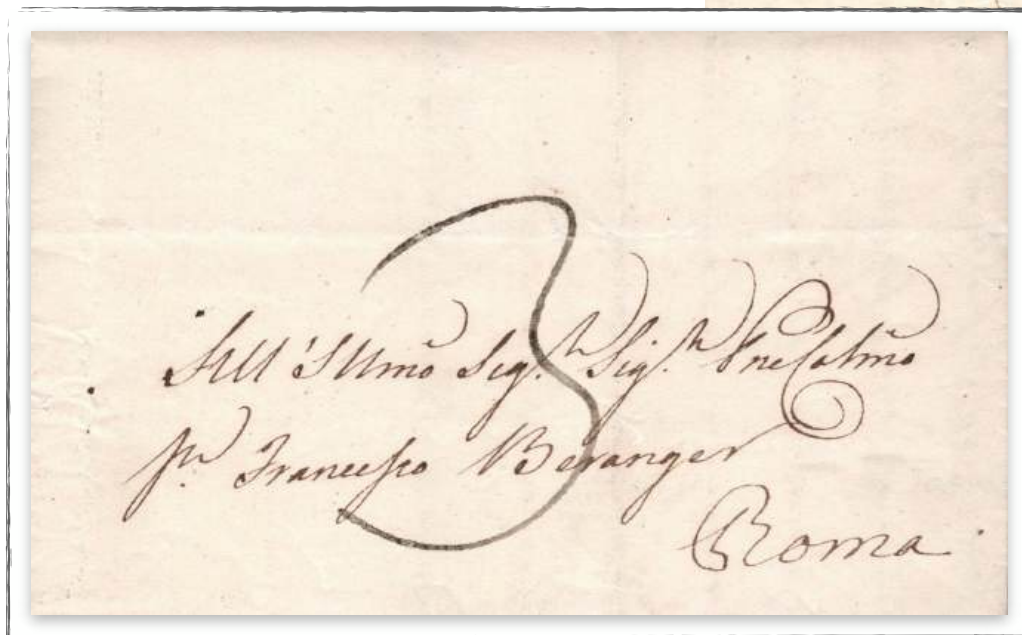 All'Illmo Sigr. Sigr. Pne Colmo
Sr. Francesco Beranger
Roma
3